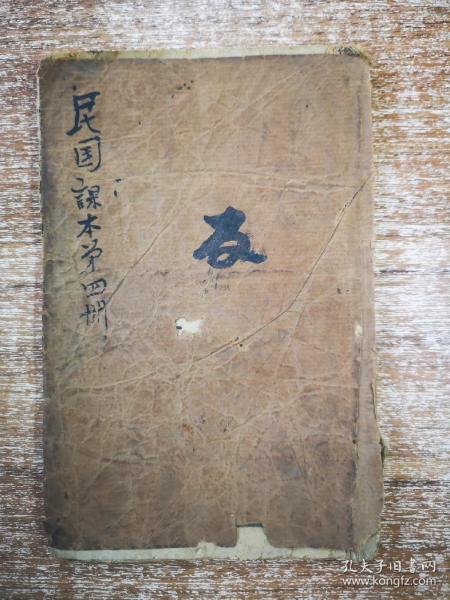 民国课本第四册
友
孔夫子旧书网
www.kongfz.com